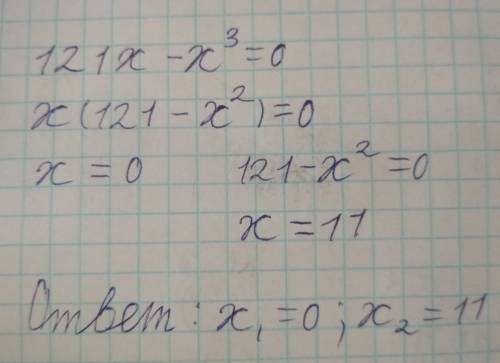 121x - x³ = 0
x(121 - x²) = 0
x = 0 121 - x² = 0
x = 11
Ответ: x₁ = 0; x₂ = 11